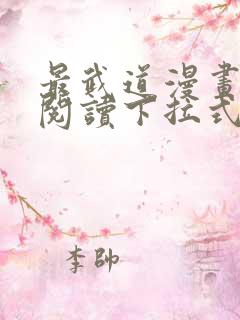 最武道漫畫
閱讀下拉式
李帥